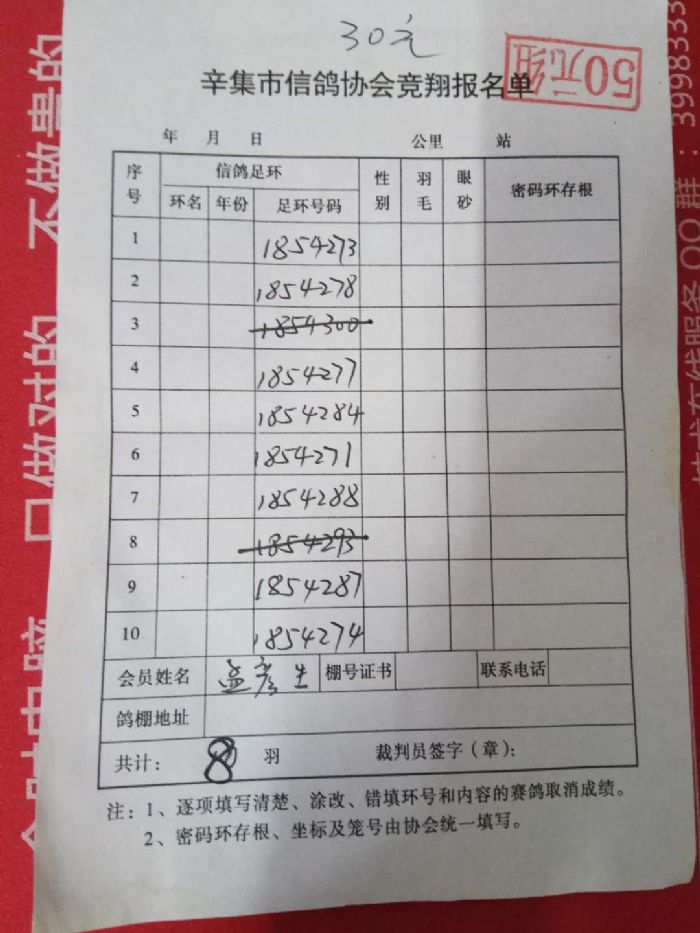 30元
50元组
辛集市信鸽协会竞翔报名单
年 月 日 公里 站
序号 信鸽足环 性别 羽毛 眼砂 密码环存根
环名 年份 足环号码
1 1854273
2 1854278
3 1854300
4 1854277
5 1854284
6 1854271
7 1854288
8 1854293
9 1854287
10 1854274
会员姓名 孟彦生 棚号证书 联系电话
鸽棚地址
共计: 8 羽 裁判员签字(章):
注: 1、逐项填写清楚、涂改、错填环号和内容的赛鸽取消成绩。
2、密码环存根、坐标及笼号由协会统一填写。
不做贵的
只做对的
QQ群: 3998333